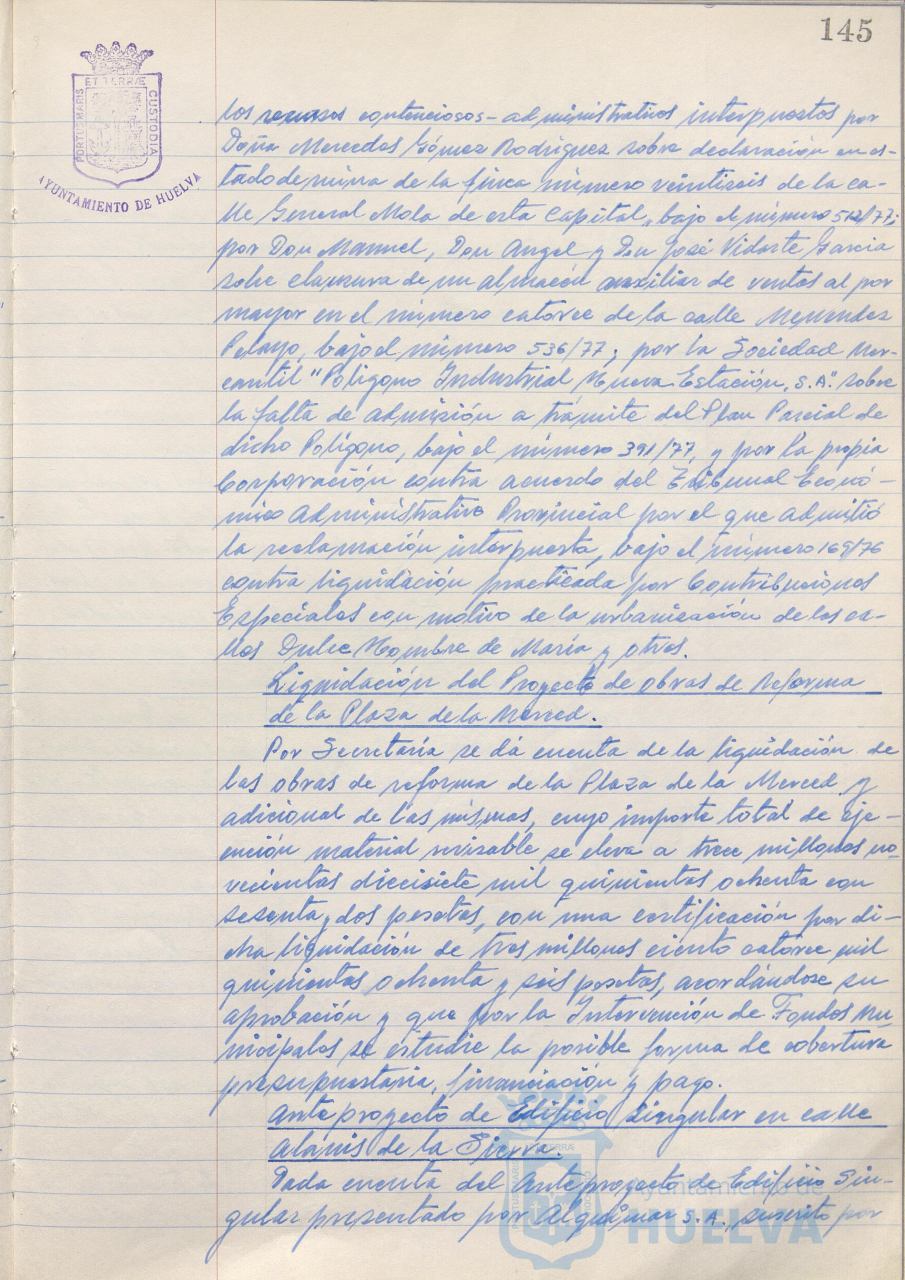 145
ET TERRÆ
PORTUS MARIS
CUSTODIA
AYUNTAMIENTO DE HUELVA
los recursos contenciosos-administrativos interpuestos por
Doña Mercedes Gómez Rodríguez sobre declaración en es-
tado de ruina de la finca número veintiseis de la ca-
lle General Mola de esta Capital, bajo el número 512/77;
por Don Manuel, Don Angel y Don José Vidarte Garcia
sobre clausura de un almacén auxiliar de ventas al por
mayor en el número catorce de la calle Menendez
Pelayo, bajo el número 536/77; por la Sociedad Mer-
cantil "Polígono Industrial Nueva Estación, S.A." sobre
la falta de admisión a trámite del Plan Parcial de
dicho Polígono, bajo el número 391/77, y por la propia
Corporación contra acuerdo del Tribunal Econó-
mico Administrativo Provincial por el que admitió
la reclamación interpuesta, bajo el número 169/76
contra liquidación practicada por Contribuciones
Especiales con motivo de la urbanización de las ca-
lles Dulce Nombre de María y otras.
Liquidación del Proyecto de obras de Reforma
de la Plaza de la Merced.
Por Secretaría se dá cuenta de la liquidación de
las obras de reforma de la Plaza de la Merced y
adicional de las mismas, cuyo importe total de eje-
cución material revisable se eleva a trece millones no-
vecientas diecisiete mil quinientas ochenta con
sesenta y dos pesetas, con una certificación por di-
cha liquidación de tres millones ciento catorce mil
quinientas ochenta y seis pesetas, acordándose su
aprobación y que por la Intervención de Fondos Mu-
nicipales se estudie la posible forma de cobertura
presupuestaria, financiación y pago.
Anteproyecto de Edificio Singular en calle
Alanis de la Sierra.
Dada cuenta del Anteproyecto de Edificio Sin-
gular presentado por Alquimar S.A., suscrito por
Ayuntamiento de
HUELVA